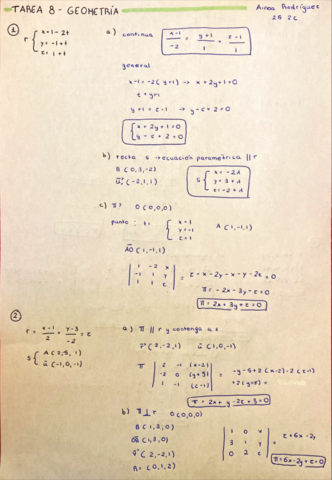 TAREA 8 - GEOMETRÍA
Ainoa Rodríguez
2B 2C
① r { x=1-2t
y=-1+t
z=1+t
a) continua
x-1/-2 = y+1/1 = z-1/1
general
x-1=-2(y+1) → x+2y+1=0
y+1=z-1 → y-z+2=0
{ x+2y+1=0
y-z+2=0
b) recta s → ecuación paramétrica || r
B(0,3,-2)
(-2,1,1)
s { x=-2λ
y=3+λ
z=-2+λ
c) π? O(0,0,0)
punto: t= { x=1
y=-1
z=1
A(1,-1,1)
AO(1,-1,1)
| 1 -2 x |
| -1 1 y |
| 1 1 z |
= z-x-2y-x-y-2z=0
= -2x-3y-z=0
π=2x+3y+z=0
②
r = x-1/2 = y-3/-2 = z
a) π || r contenga a s
(2,-2,1) (1,0,-1)
π | 2 -1
-2 0 (y+5)
1 -1
π=2x+y-2z+3=0
b) π⊥r O(0,0,0)
B(1,3,0)
OB(1,3,0)
(2,-2,1)
(0,1,2)
| 1 0 x |
| 3 1 y |
| 0 2 z |
= z+6x-2y
π=6x-2y+z=0